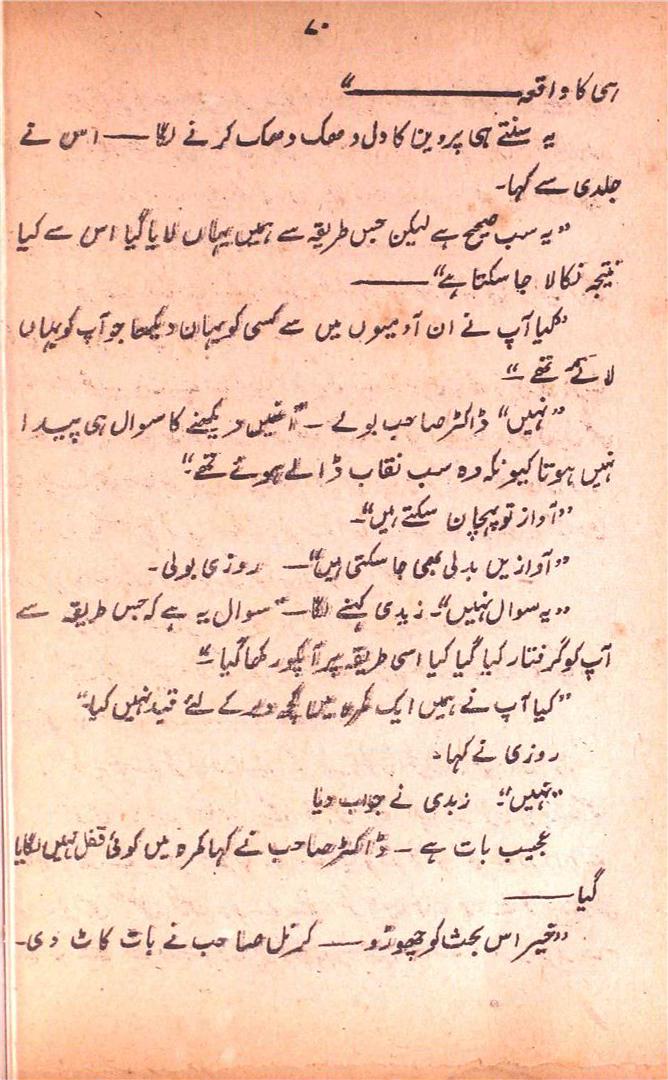 ۷۰
اسی کا واقعہ ——————"
یہ سنتے ہی پروینا کا دل دھک دھک کرنے لگا —— اس نے
جلدی سے کہا۔
"یہ سب صحیح ہے لیکن جس طریقہ سے ہمیں یہاں لایا گیا اس سے کیا
نتیجہ نکالا جا سکتا ہے" ————
"کیا آپ نے ان آدمیوں میں سے کسی کو یہاں دیکھا جو آپ کو یہاں
لائے تھے ۔"
"نہیں" ڈاکٹر صاحب بولے ۔ "انہیں دیکھنے کا سوال ہی پیدا
نہیں ہوتا کیونکہ وہ سب نقاب ڈالے ہوئے تھے۔"
"آواز تو پہچان سکتے ہیں"۔
"آوازیں بدلی بھی جا سکتی ہیں"۔ روزی بولی۔
"یہ سوال نہیں"۔ زیدی کہنے لگا — "سوال یہ ہے کہ جس طریقہ سے
آپ کو گرفتار کیا گیا کیا اسی طریقہ پر آپکو رکھا گیا ۔"
"کیا آپ نے ہمیں ایک کمرہ میں کچھ دیر کے لئے قید نہیں کیا۔"
روزی نے کہا۔
"نہیں"۔ زیدی نے جواب دیا
عجیب بات ہے ۔ ڈاکٹر صاحب نے کہا کمرہ میں کوئی قفل نہیں لگایا
گیا ————
"خیر اس بحث کو چھوڑو —— کرنل صاحب نے بات کاٹ دی۔